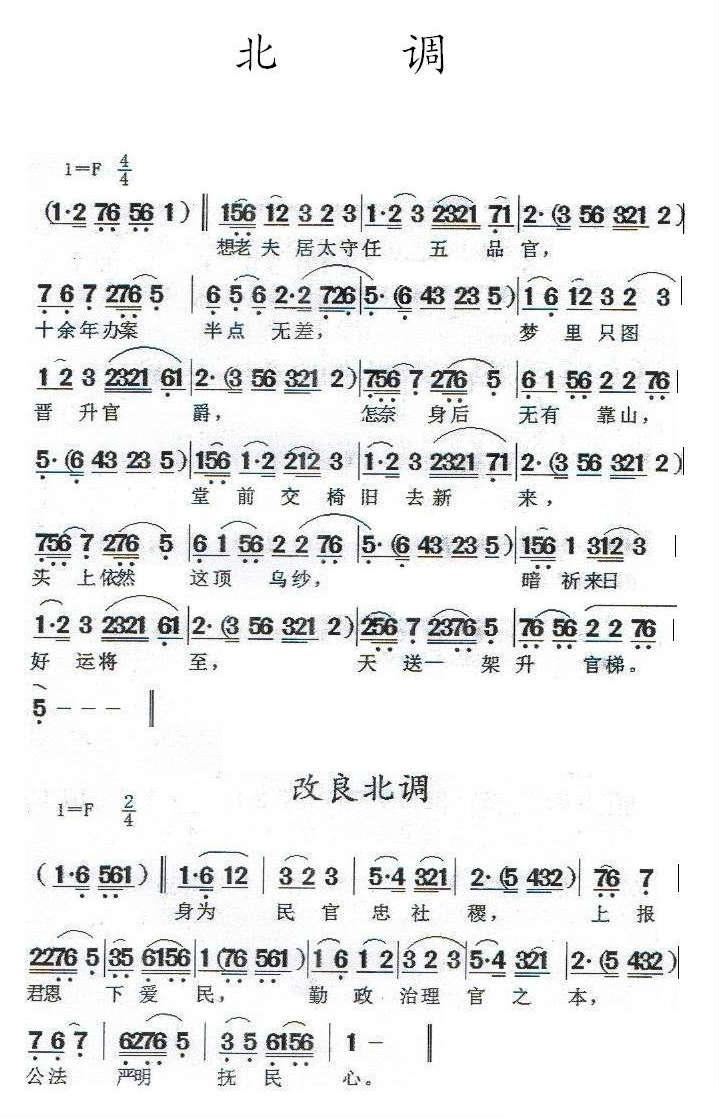 北 调
1=F 4/4
(1·2 76 56 1) ‖ 156 12 3 2 3 | 1·2 3 2321 71 | 2· (3 56 321 2) |
想老 夫 居太守任 五 品 官，
7 6 7 276 5 | 6 5 6 2·2 726 | 5· (6 43 23 5) | 1 6 12 3 2 3 |
十余年办案 半点 无差， 梦 里 只图
1 2 3 2321 61 | 2· (3 56 321 2) | 756 7 276 5 | 6 1 56 2 2 76 |
晋 升官 爵， 怎奈 身后 无有 靠山，
5· (6 43 23 5) | 156 1·2 212 3 | 1·2 3 2321 71 | 2· (3 56 321 2) |
堂 前 交 椅旧 去新 来，
756 7 276 5 | 6 1 56 2 2 76 | 5· (6 43 23 5) | 156 1 312 3 |
头 上依然 这顶 乌纱， 暗 祈来日
1·2 3 2321 61 | 2· (3 56 321 2) | 256 7 2376 5 | 76 56 2 2 76 |
好 运将 至， 天 送一 架升 官梯。
5 - - - ‖
改良北调
1=F 2/4
(1·6 561) ‖ 1·6 12 | 3 2 3 | 5·4 321 | 2· (5 432) | 76 7 |
身为 民 官 忠 社 稷， 上 报
2276 5 | 35 6156 | 1 (76 561) | 1 6 1 2 | 3 2 3 | 5·4 321 | 2· (5 432) |
君恩 下 爱 民， 勤 政 治理 官 之 本，
7 6 7 | 6276 5 | 3 5 6156 | 1 - ‖
公法 严明 抚 民 心。